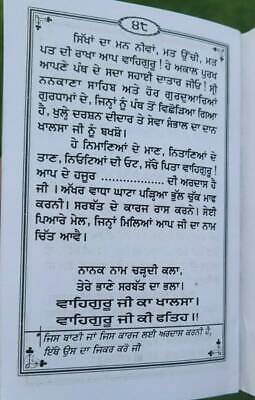 ੪੮
ਸਿੱਖਾਂ ਦਾ ਮਨ ਨੀਵਾਂ, ਮਤ ਉੱਚੀ, ਮਤ
ਪਤ ਦੀ ਰਾਖਾ ਆਪ ਵਾਹਿਗੁਰੂ ! ਹੇ ਅਕਾਲ ਪੁਰਖ
ਆਪਣੇ ਪੰਥ ਦੇ ਸਦਾ ਸਹਾਈ ਦਾਤਾਰ ਜੀਓ ! ਸ੍ਰੀ
ਨਨਕਾਣਾ ਸਾਹਿਬ ਅਤੇ ਹੋਰ ਗੁਰਦੁਆਰਿਆਂ
ਗੁਰਧਾਮਾਂ ਦੇ, ਜਿਨ੍ਹਾਂ ਨੂੰ ਪੰਥ ਤੋਂ ਵਿਛੋੜਿਆ ਗਿਆ
ਹੈ, ਖੁਲ੍ਹੇ ਦਰਸ਼ਨ ਦੀਦਾਰ ਤੇ ਸੇਵਾ ਸੰਭਾਲ ਦਾ ਦਾਨ
ਖਾਲਸਾ ਜੀ ਨੂੰ ਬਖਸ਼ੋ।
ਹੇ ਨਿਮਾਣਿਆਂ ਦੇ ਮਾਣ, ਨਿਤਾਣਿਆਂ ਦੇ
ਤਾਣ, ਨਿਓਟਿਆਂ ਦੀ ਓਟ, ਸੱਚੇ ਪਿਤਾ ਵਾਹਿਗੁਰੂ !
ਆਪ ਦੇ ਹਜ਼ੂਰ .................. ਦੀ ਅਰਦਾਸ ਹੈ
ਜੀ । ਅੱਖਰ ਵਾਧਾ ਘਾਟਾ ਪੜਿਆ ਭੁੱਲ ਚੁੱਕ ਮਾਫ
ਕਰਨੀ। ਸਰਬੱਤ ਦੇ ਕਾਰਜ ਰਾਸ ਕਰਨੇ। ਸੇਈ
ਪਿਆਰੇ ਮੇਲ, ਜਿਨ੍ਹਾਂ ਮਿਲਿਆਂ ਆਪ ਜੀ ਦਾ ਨਾਮ
ਚਿੱਤ ਆਵੈ।
ਨਾਨਕ ਨਾਮ ਚੜ੍ਹਦੀ ਕਲਾ,
ਤੇਰੇ ਭਾਣੇ ਸਰਬੱਤ ਦਾ ਭਲਾ।
ਵਾਹਿਗੁਰੂ ਜੀ ਕਾ ਖਾਲਸਾ।
ਵਾਹਿਗੁਰੂ ਜੀ ਕੀ ਫਤਿਹ॥
ਜਿਸ ਬਾਣੀ ਜਾਂ ਜਿਸ ਕਾਰਜ ਲਈ ਅਰਦਾਸ ਕਰਨੀ ਹੈ,
ਇੱਥੇ ਉਸ ਦਾ ਜਿਕਰ ਕਰੋ ਜੀ